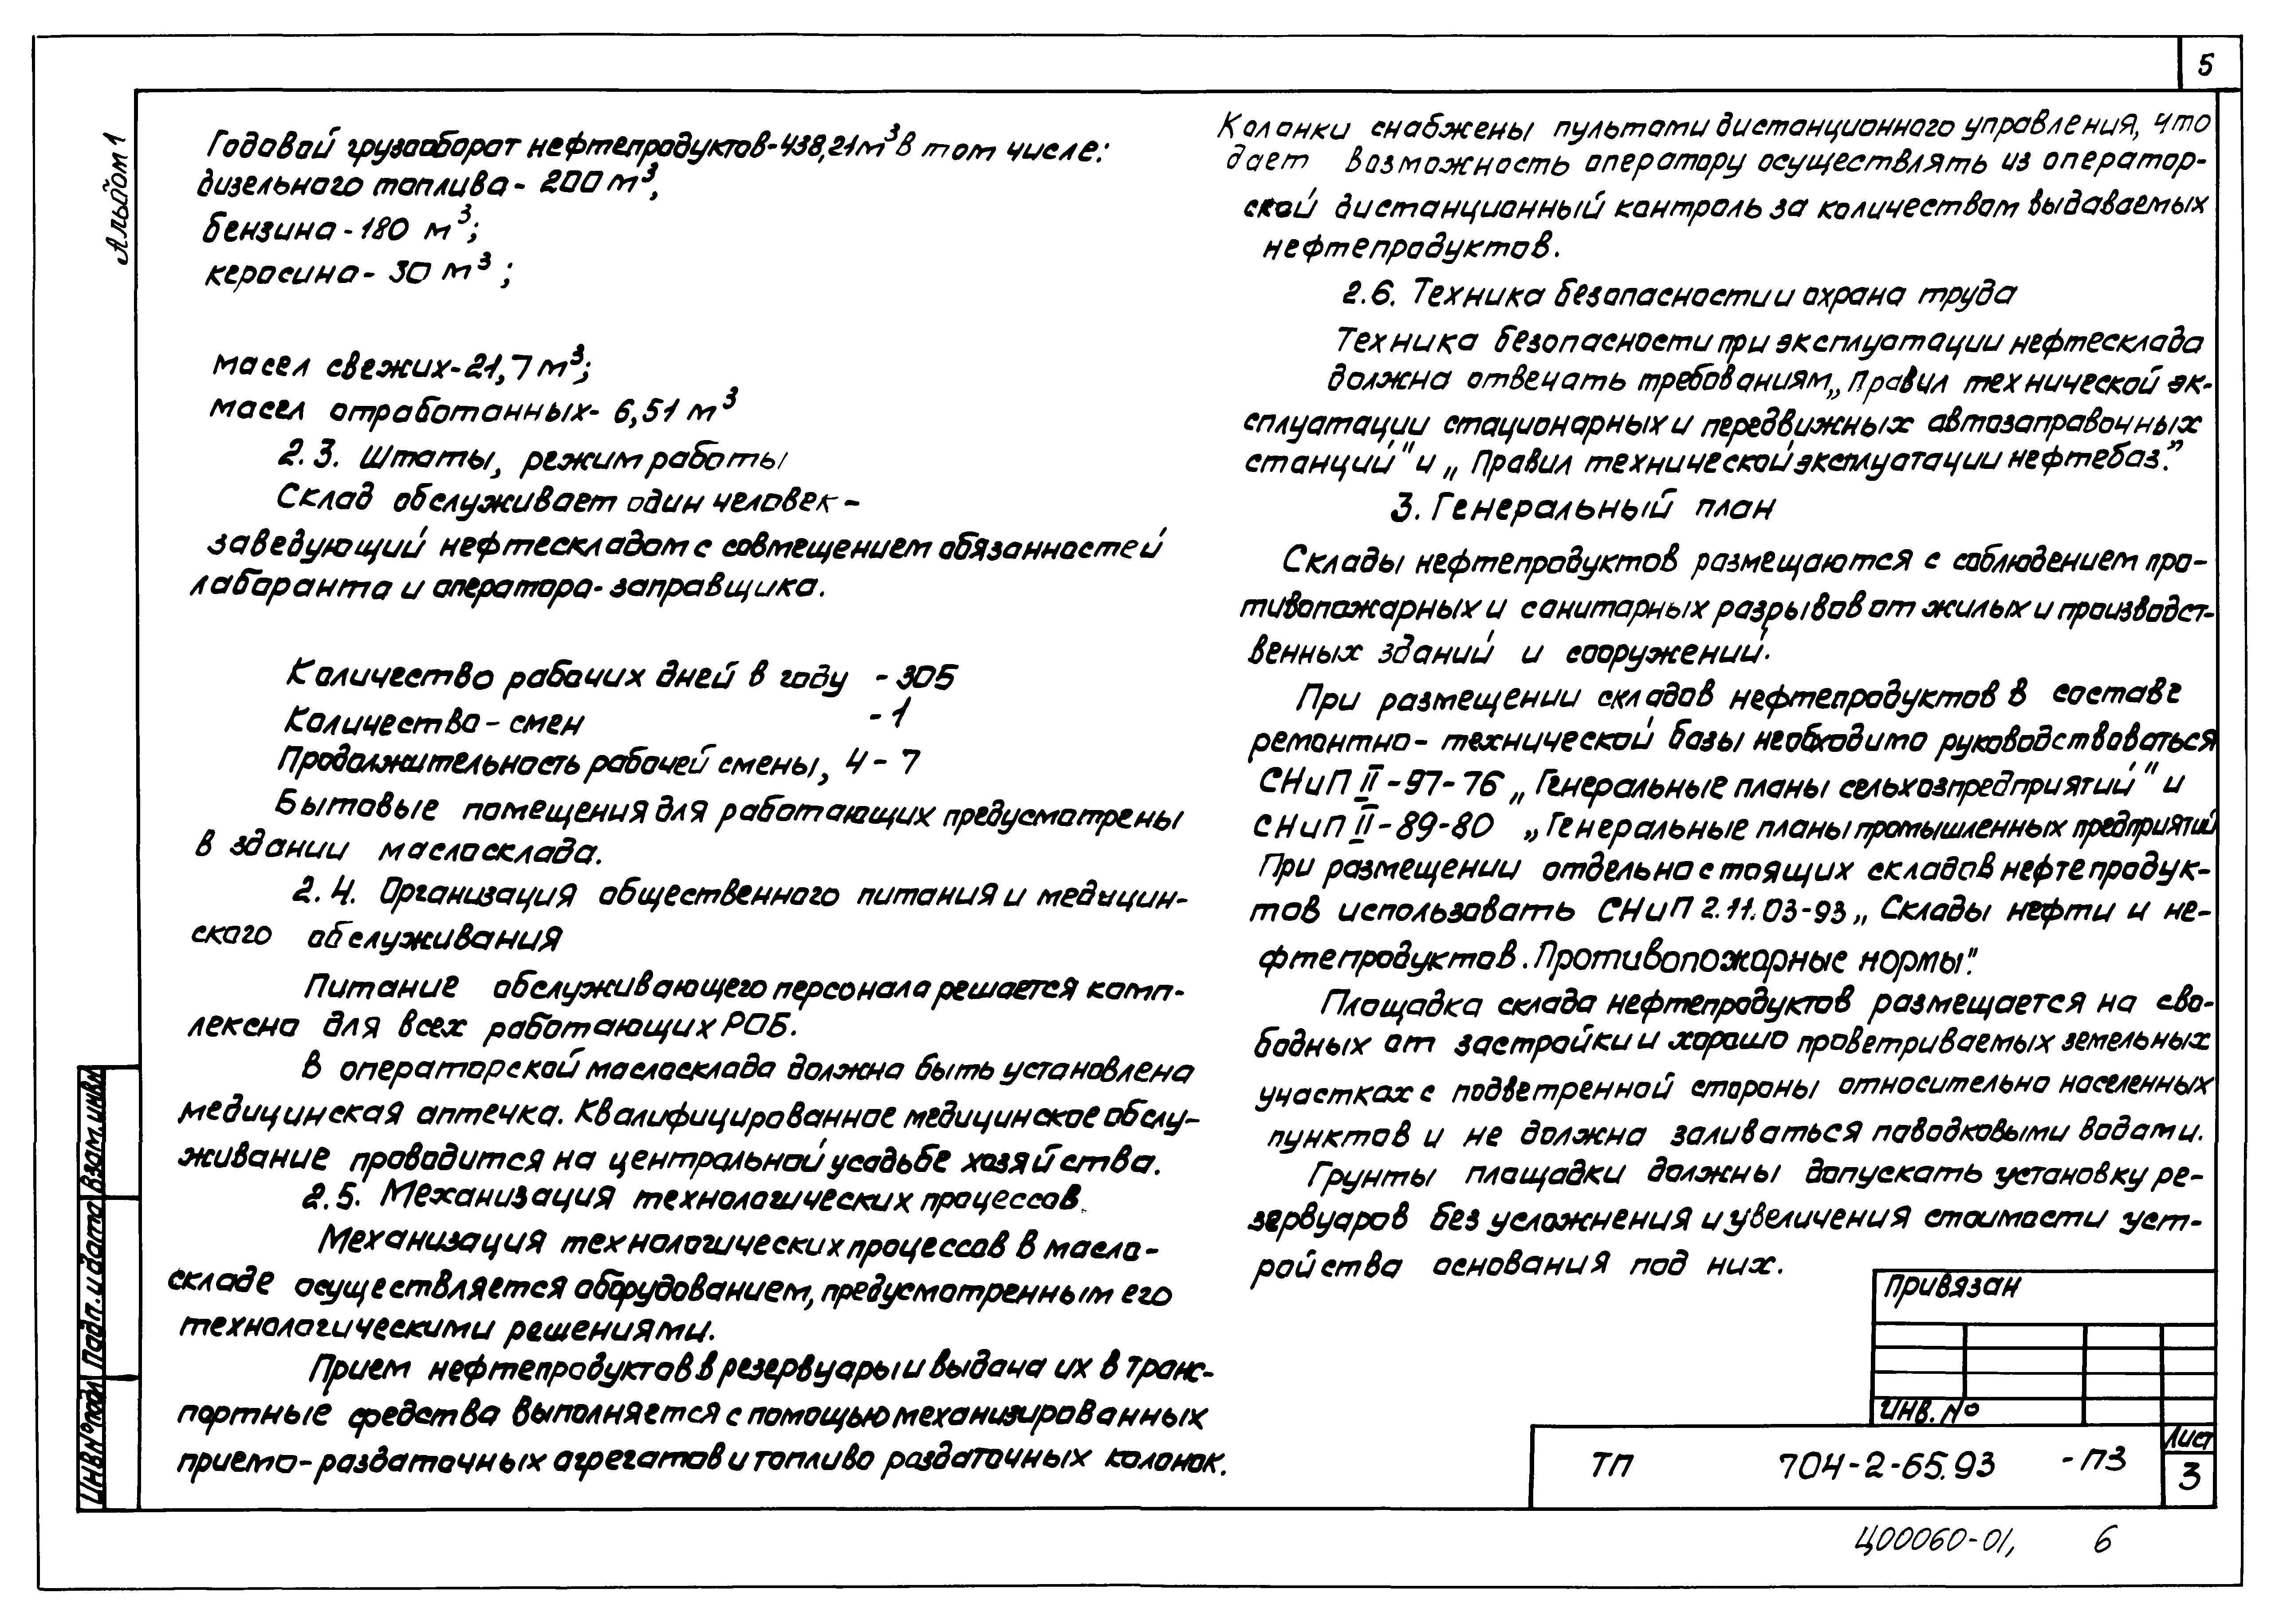 5
Альбом 1
Годовой грузооборот нефтепродуктов-438,21м³ в том числе:
дизельного топлива- 200 м³,
бензина-180 м³;
керосина- 30 м³;
масел свежих-21,7 м³;
масел отработанных- 6,51 м³
2.3. Штаты, режим работы
Склад обслуживает один человек –
заведующий нефтескладом с совмещением обязанностей
лаборанта и оператора-заправщика.
Количество рабочих дней в году - 305
Количество-смен - 1
Продолжительность рабочей смены, ч - 7
Бытовые помещения для работающих предусмотрены
в здании маслосклада.
2.4. Организация общественного питания и медицин-
ского обслуживания
Питание обслуживающего персонала решается комп-
лексно для всех работающих РОБ.
В операторской маслосклада должна быть установлена
медицинская аптечка. Квалифицированное медицинское обслу-
живание проводится на центральной усадьбе хозяйства.
2.5. Механизация технологических процессов.
Механизация технологических процессов в масло-
складе осуществляется оборудованием, предусмотренным его
технологическими решениями.
Прием нефтепродуктов в резервуары и выдача их в транс-
портные средства выполняется с помощью механизированных
приемо-раздаточных агрегатов и топливо раздаточных колонок.
Колонки снабжены пультами дистанционного управления, что
дает возможность оператору осуществлять из оператор-
ской дистанционный контроль за количеством выдаваемых
нефтепродуктов.
2.6. Техника безопасности и охрана труда
Техника безопасности при эксплуатации нефтесклада
должна отвечать требованиям „Правил технической эк-
сплуатации стационарных и передвижных автозаправочных
станций" и „Правил технической эксплуатации нефтебаз."
3. Генеральный план
Склады нефтепродуктов размещаются с соблюдением про-
тивопожарных и санитарных разрывов от жилых и производст-
венных зданий и сооружений.
При размещении складов нефтепродуктов в составе
ремонтно-технической базы необходимо руководствоваться
СНиП II-97-76 „Генеральные планы сельхозпредприятий" и
СНиП II-89-80 „Генеральные планы промышленных предприятий
При размещении отдельно стоящих складов нефтепродук-
тов использовать СНиП 2.11.03-93 „Склады нефти и не-
фтепродуктов. Противопожарные нормы".
Площадка склада нефтепродуктов размещается на сво-
бодных от застройки и хорошо проветриваемых земельных
участках с подветренной стороны относительно населенных
пунктов и не должна заливаться паводковыми водами.
Грунты площадки должны допускать установку ре-
зервуаров без усложнения и увеличения стоимости уст-
ройства основания под них.
Привязан
Инв. №
ТП 704-2-65.93 -ПЗ
Лист
3
Взам.инв№
Подп. и дата
Инв№подл
Ц00060-01, 6